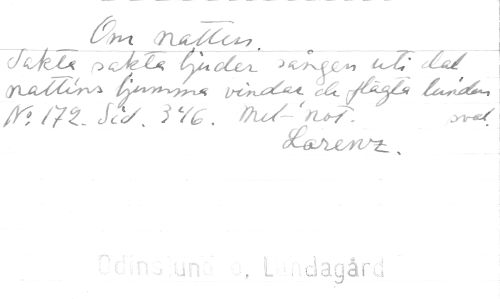 Om natten.
Sakta sakta ljuder sången uti dal
nattens ljumma vindar de flägta lunden
sval.
No 172. Sid. 346. Mel-not.
Lorenz.
Odinslund o. Lundagård